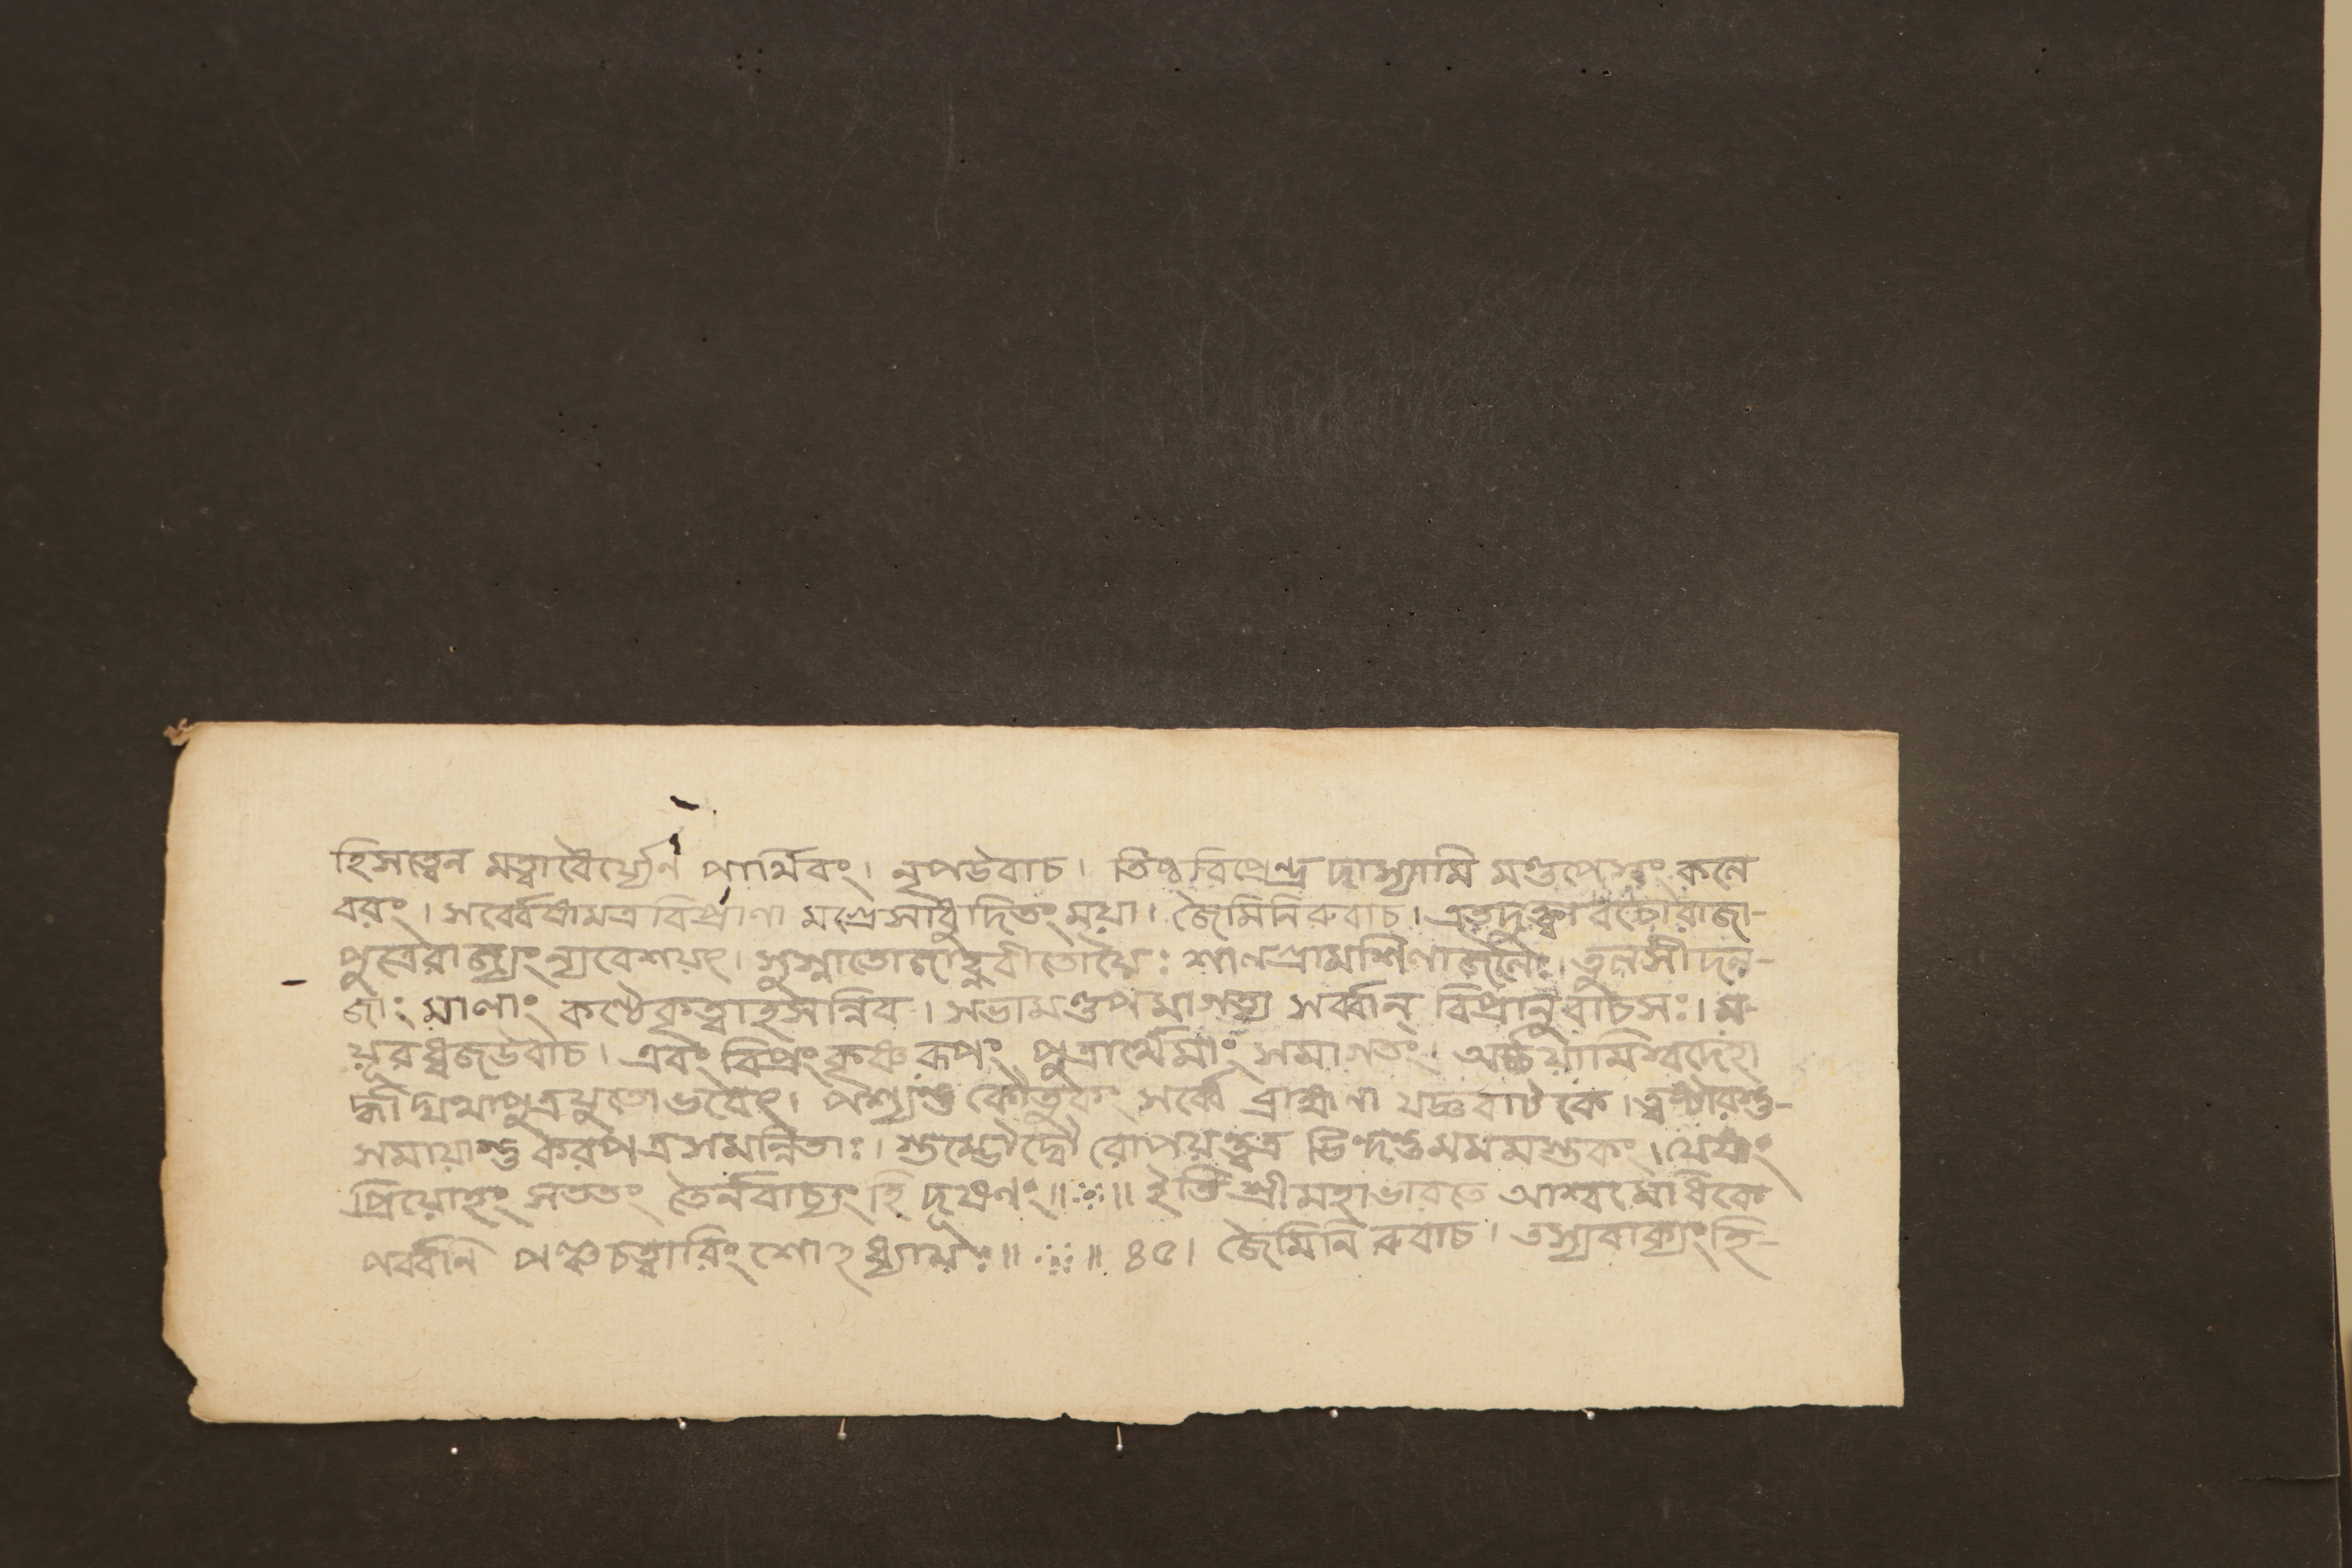 হিসত্বেন মত্বাবৈর্য্যেন পার্থিবং। নৃপউবাচ। তিষ্ঠবিপ্রেন্দ্র দাস্যামি মণ্ডপেস্বং কলে
বরং। সর্ব্বেষামত্রবিপ্রাণা মগ্রেসাধুদিতং ময়া। জৈমিনিরুবাচ। এতদুক্ত্বাবচোরাজা-
পুত্রেরাজ্যং ন্যবেশয়ৎ। সুস্নাতোজাহ্নবীতোয়ৈঃ শালগ্রামশিলাজলৈঃ। তুলসীদল-
জাং মালাং কণ্ঠেকৃত্বাহসন্নিব। সভামণ্ডপমাগত্য সর্ব্বান্ বিপ্রানুবাচসঃ। ম-
য়ূরধ্বজউবাচ। এবং বিপ্রং কৃষ্ণরূপং পুত্রার্থেমাং সমাগতং। অর্চ্চয়ামিস্বদেহা
র্দ্ধাদ্যথাপুত্রযুতোভবেৎ। পশ্যন্তু কৌতুকং সর্ব্বে ব্রাহ্মণা যজ্ঞবাটকে।
সমায়ান্তু করপত্রসমন্বিতাঃ। স্তম্ভৌদ্বৌ রোপয়ন্ত্বত্র ভিন্দন্তুমমমস্তকং। যেষাং
প্রিয়োহং সততং তৈর্নবাচ্যং হি দূষণং॥ঃ॥ ইতি শ্রীমহাভারতে আশ্বমেধিকে
পর্ব্বনি পঞ্চচত্বারিংশোহধ্যায়ঃ॥ঃ॥ ৪৫। জৈমিনিরুবাচ। তস্যবাক্যংহি-